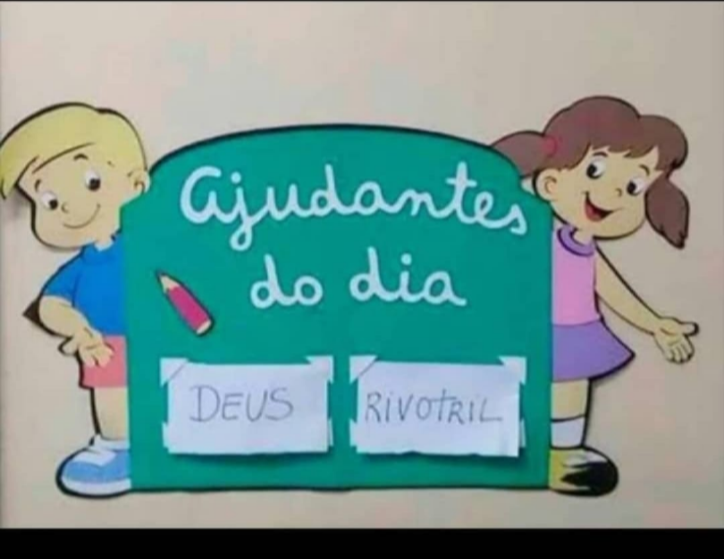 Ajudantes
do dia
DEUS
RIVOTRIL